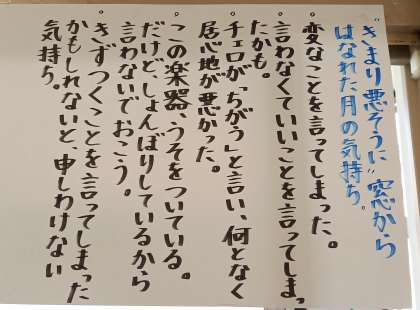 "きまり悪そうに"窓から
はなれた月の気持ち。
・変なことを言ってしまった。
・言わなくていいことを言ってしまっ
たかも。
・チェロが「ちがう」と言い、何となく
居心地が悪かった。
・この楽器、うそをついている。
だけど、しょんぼりしているから
言わないでおこう。
・きずつくことを言ってしまった
かもしれないと、申しわけない
気持ち。